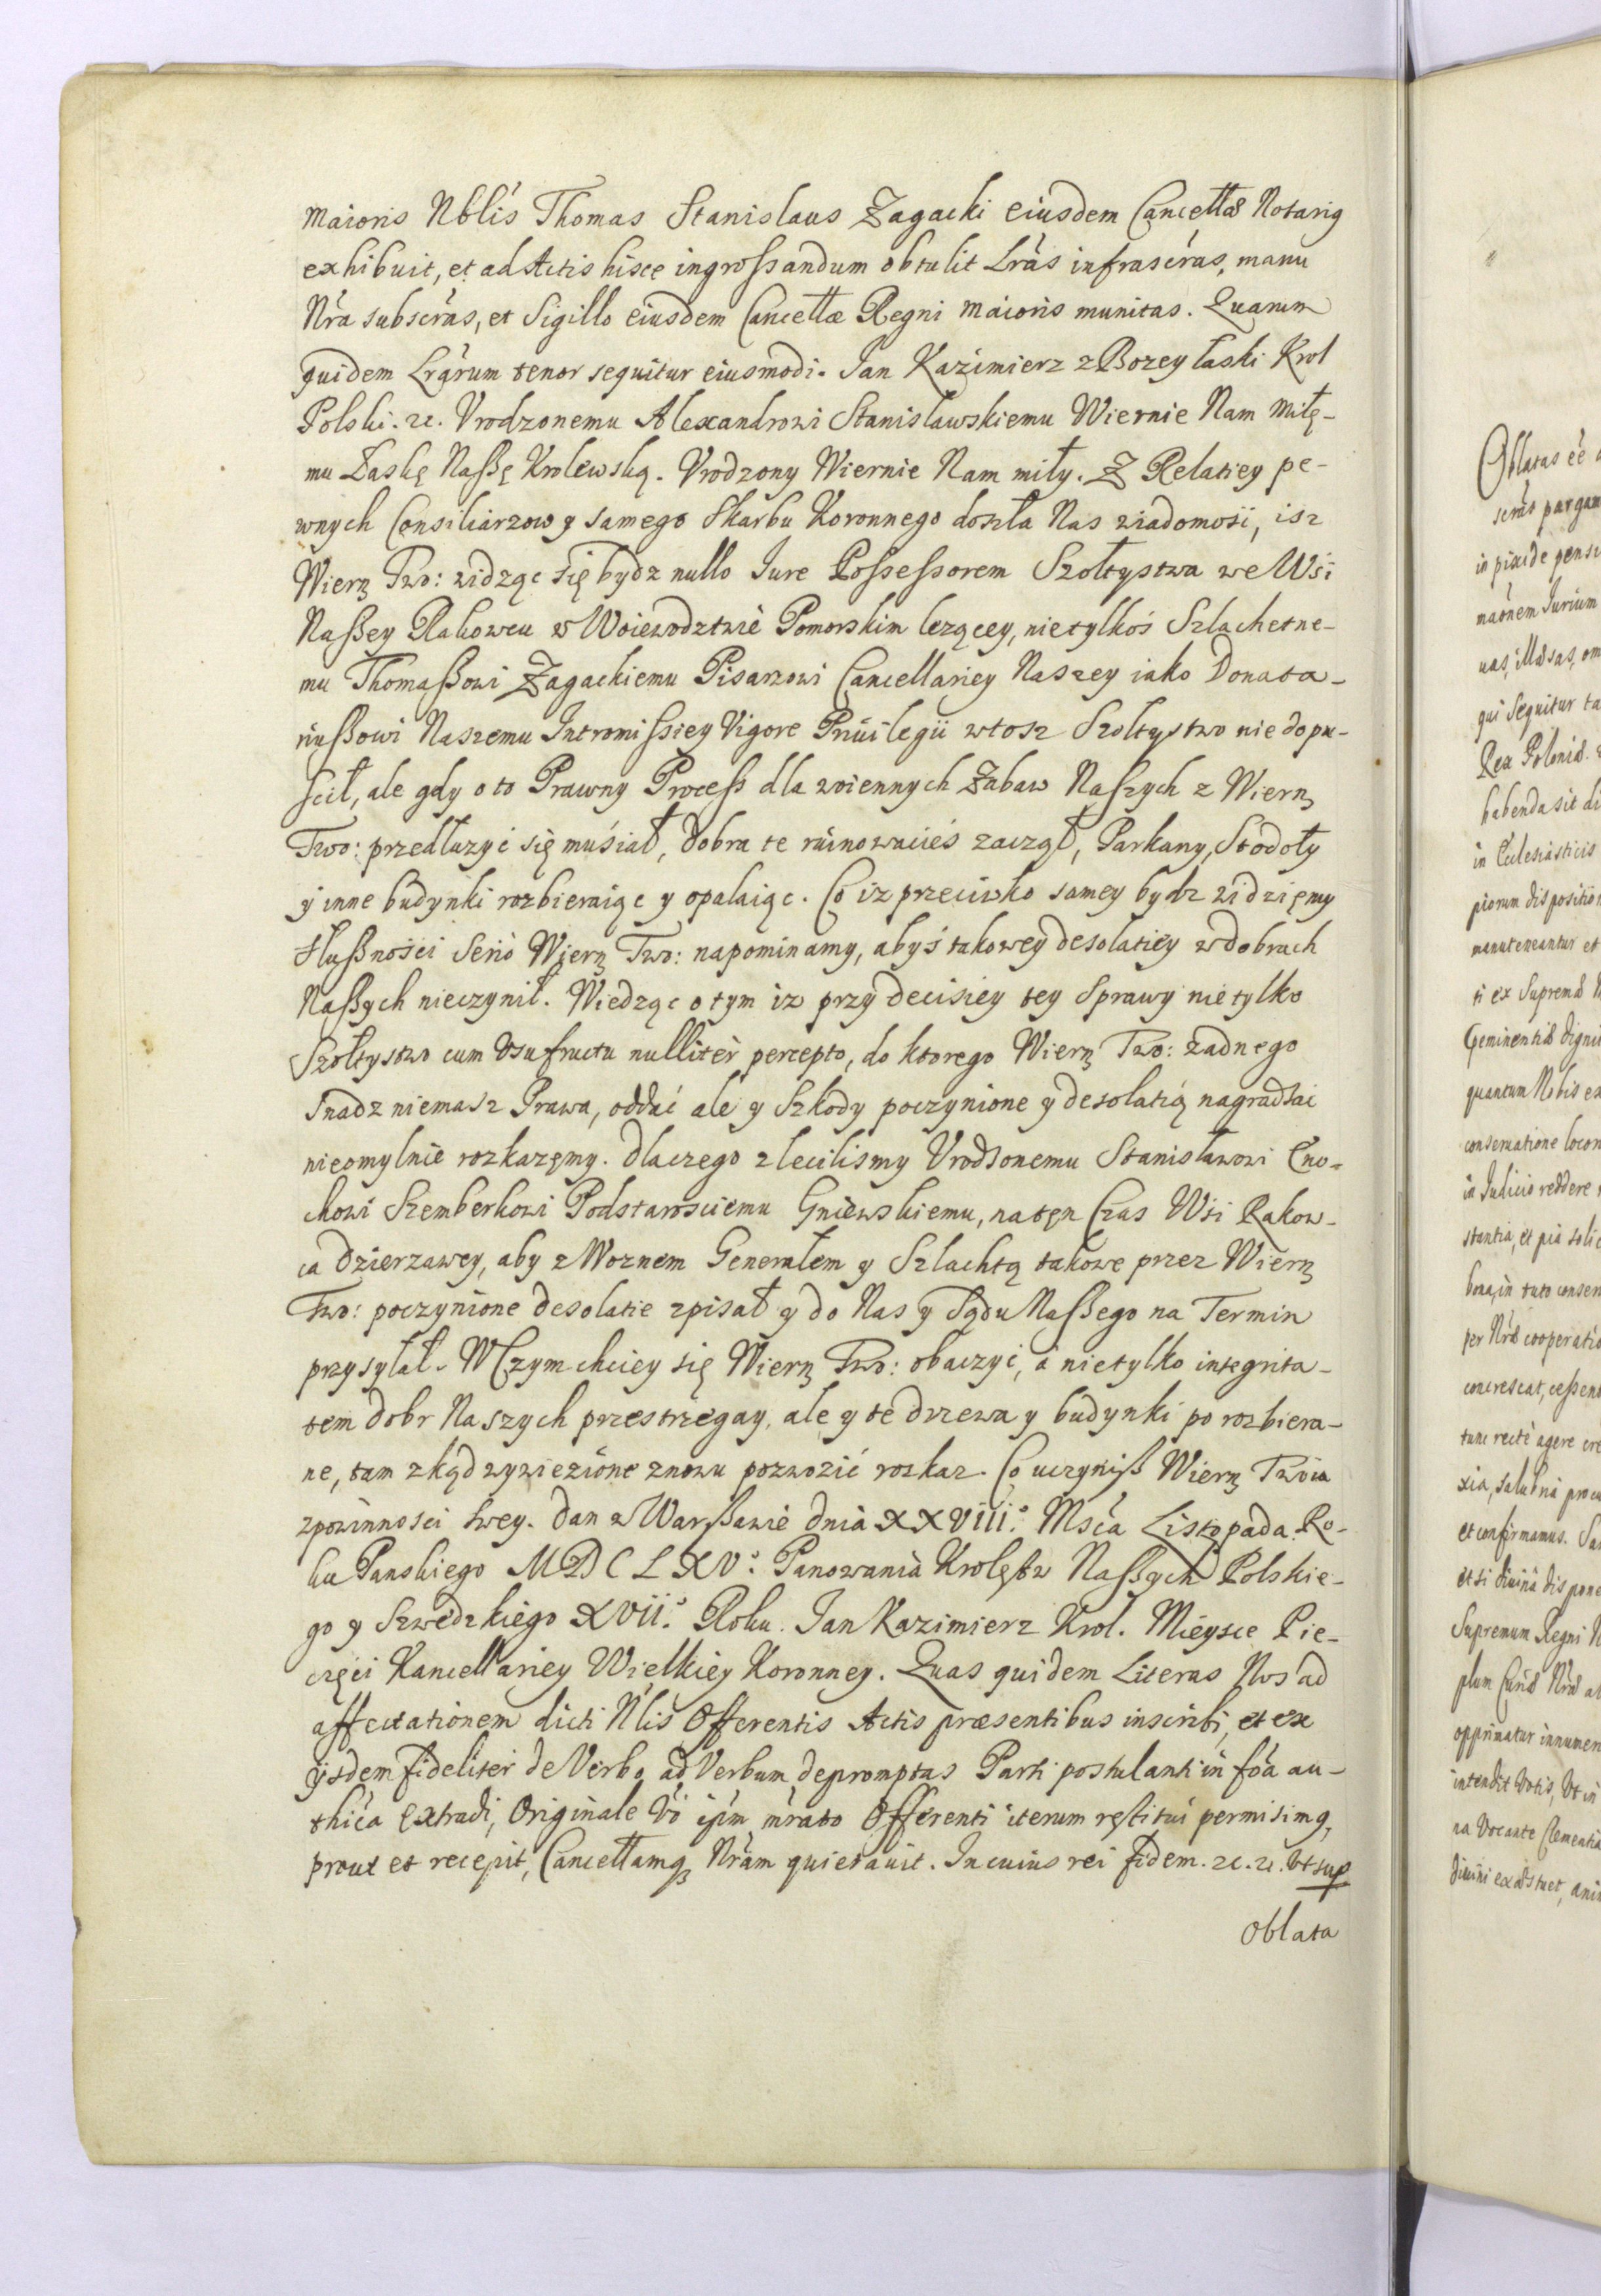 Maioris Nblis Thomas Stanislaus Zagacki eiusdem Cancellæ Notarig
exhibuit, et ad Actis hisce ingrossandum obtulit Lras infrascras, manu
Nra subscras, et Sigillo eiusdem Cancellæ Regni Maioris munitas. Quarum
quidem Lrarum tenor sequitur eiusmodi. Jan Kazimierz z Bozey łaski Krol
Polski. zc. Vrodzonemu Alexandrowi Stanisławskiemu Wiernie Nam miłę-
mu Łaskę Naßę Krolewską. Vrodzony Wiernie Nam miły. Z Relatiey pe-
wnych Consiliarzow y samego Skarbu Koronnego doszła Nas wiadomość, isz
Wierz Two: widząc się bydz nullo Iure Possessorem Szołtystwa we Wsi
Naßey Rakowcu w Woiewodztwie Pomorskim lezącey, nietylkoś Szlachetne-
mu Thomaßowi Zagackiemu Pisarzowi Cancellariey Naszey iako Donata-
riußowi Naszemu Intromissiey Vigore Priuilegii w tosz Szołtystwo niedopu-
scił, ale gdy o to Prawny Process dla woiennych Zabaw Naszych z Wierz
Two: przedłuzyć się muśiał, dobra te ruinowaćieś zaczął, Parkany, Stodoły
y inne budynki rozbieraiąc y opalaiąc. Co iz przeciwko samey bydz widzięmy
słußności serio Wierz Two: napominamy, abyś takowey desolatiey w dobrach
Naßych nieczynił. Wiedząc o tym iz przy decisiey tey Sprawy nie tylko
Szołtystwo cum Vsufructu nulliter percepto, do ktorego Wierz Two: zadnego
snadz niemasz Prawa, oddać ale y Szkody poczynione y desolatią nagradzać
nieomylnie rozkazęmy. dlaczego zlecilismy Vrodzonemu Stanisławowi Cno-
chowi Szemberkowi Podstarosciemu Gniewskiemu, natęn Czas Wsi Rakow-
ca dzierzawcy, aby z Woznem Generałem y Szlachtą takowe przez Wierz
Two: poczynione desolatie zpisał y do Nas y Sądu Naßego na Termin
przysyłał. W Czym chciey się Wierz Two: obaczyć, a nietylko integrita-
tem dobr Naszych przestrzegay, ale y te drzewa y budynki porozbiera-
ne, tam zkąd wywiezione znowu pozwozić roskaz. Co uczyniß Wierz Twoia
z powinnosci swey. Dan w Warßawie dnia XXVIII. Msca Listopada Ro-
ku Panskiego MDCLXV. Panowania Krolęstw Naßych Polskie-
go y Szwedzkiego XVII. Roku. Jan Kazimierz Krol. Mieysce Pie-
częci Kancellariey Wielkiey Koronney. Quas quidem Literas Nos ad
affectationem dicti Nlis Offerentis Actis præsentibus inscribi, et ex
ijsdem fideliter de Verbo ad Verbum depromptas Parti postulanti in foa au-
thica extradi, Originale Vo ipm mrato Offerenti iterum restitui permisimg,
prout et recepit, Cancellamq Nram quietauit. In cuius rei fidem. zc. zc. Ut sup
Oblata
Oblatas
in pixide
qui sequitur
babenda sit
in Ecclesiasticis
manuteneantur et
ti ex Supremá
quantum Nobis
in Judicio reddere
stantia, et pia
et confirmamus.
Supremum Regni
opprimatur
intendit Votis, Ut in